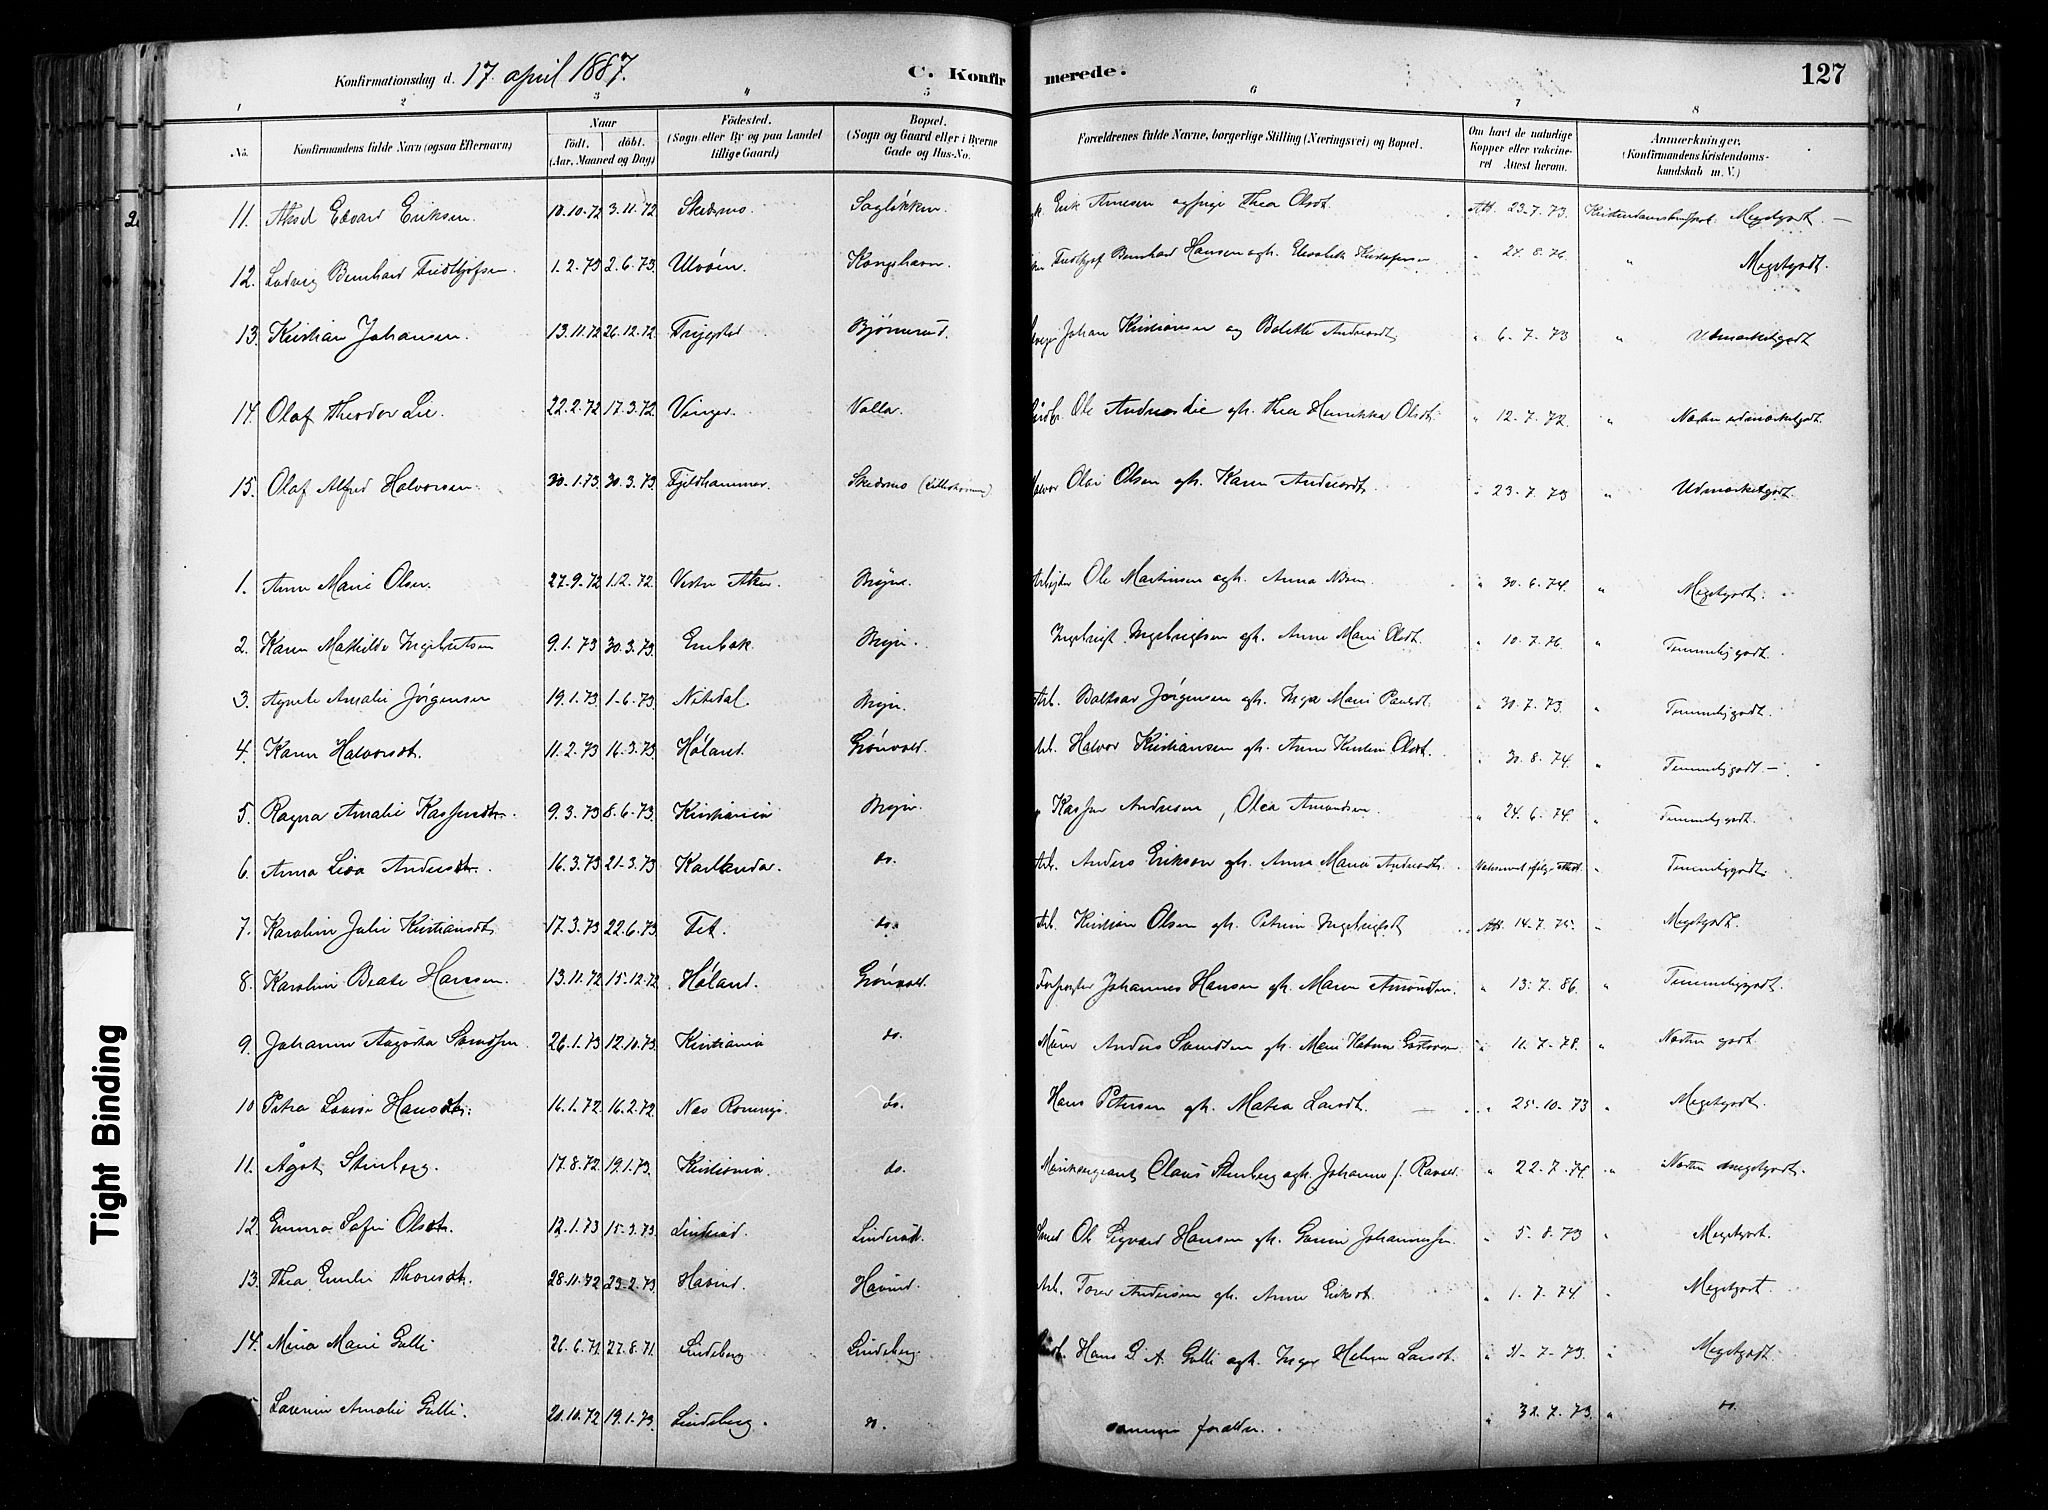 Konfirmationsdag d. 17. april 1887. C. Konfirmerede. 127
1 2 3 4 5 6 7 8
No. Konfirmandens fulde Navn (ogsaa Efternavn) Naar födt. döbt. (Aar, Maaned og Dag) Födested. (Sogn eller By og paa Landet tillige Gaard) Bopæl. (Sogn og Gaard eller i Byerne Gade og Hus-No. Forældrenes fulde Navne, borgerlige Stilling (Næringsvei) og Bopæl. Om havt de naturlige Kopper eller vakcineret Attest herom. Anmærkninger, (Konfirmandens Kristendomskundskab m. V.)
2
11. Aksel Edvard Eriksen 10.10.72 3.11.72 Skedsmo Sagløkken Erik Arnesen og Thea Olsdt. Att. 23.7.73. Megetgodt.
12. Ludvig Bernhard Fridthjofsen 1.2.73 2.6.73. Ulvøen Kongshavn Fridthjof Bernhard Hansen ogh. " 24.8.76 " Megetgodt.
13. Kristian Johansen. 13.11.72 26.12.72 Trygstad Bjørnerud. Johan Kristiansen og Bolette Andersdt. " 6.7.73 " Udmærketgodt
14. Olaf Theodor Lie 22.2.72 17.3.72 Vinger. Valle. Ole Andreas Lie gh. Thea Henrikka Olsdt. " 12.7.72. " Næsten udmærketgodt.
15. Olaf Alfred Halvorsen. 30.1.73 30.3.73 Fjeldhammer. Skedsmo Olai Olsen gh. Karen Andersdt. " 23.7.73 " Udmærketgodt.
1. Anne Marie Olsen. 27.9.72 1.12.72 Vestre Aker Bryn. Arbeider Ole Martinsen ogh. Anna " 30.6.74. " Megetgodt.
2. Karen Mathilde Ingebretsen 9.1.73 30.3.73. Enebak Bryn. Ingebrigt Ingebrigtsen gh. Anne Marie Olsdt. " 10.7.76. " Temmeliggodt.
3. Agnete Amalie Jørgensen 19.1.73 1.6.73. Nitedal. Bryn. Arb. Baltsar Jørgensen gh. Inga Marie Paulsdt. " 30.7.73. " Temmeliggodt.
4. Karen Halvorsdt. 11.2.73 16.3.73 Høland. Grønvold. Arb. Halvor Kristiansen gh. Anne Kirstine Olsdt. " 30.8.74. " Temmeliggodt.
5. Ragna Amalie Kaspersdtr. 9.3.73 8.6.73. Kristiania Bryn. " Kasper Andersen, Olea Amundsen " 24.6.74. " Temmeliggodt.
6. Anna Lisa Andersdtr. 16.3.73 21.3.73 Karlanda. do. Arb. Anders Erikson gh. Anna Maria Andersdt. " Temmeliggodt.
7. Karoline Julie Kristiansdt. 17.3.73 22.6.73. Fet. do. Arb. Kristian Olsen gh. Petrine Ingebrigtsdt. Att. 14.7.75. " Megetgodt.
8. Karoline Beate Hansen. 13.11.72 15.12.72 Høland. Grønvold. Forpagter Johannes Hansen gh. Maren Amundsen. " 13.7.86. " Temmeliggodt.
9. Johanne Augusta 26.1.73 12.10.73. Kristiania do. Murer Anders gh. Marie " 11.7.78. " Næsten godt.
10 Petra Lovise Hansdtr. 16.1.72 16.2.72 Næs Romerige. do. Hans Petersen gh. Matea Larsdt. " 25.10.73 " Megetgodt.
11. Ågot Stenberg. 17.8.72 19.1.73. Kristiania. do. Claus Stenberg ogh. Johanne f. " 22.7.74. " Næsten megetgodt.
12. Emma Sofie Olsdtr. 12.1.73 15.3.73. Linderud. Linderud. Smed Ole Sigvard Hansen gh. Johannessen. " 5.8.73 " Megetgodt.
13. Thea Emilie Thoresdtr. 28.11.72 23.2.73. Havind. Havind. Arb. Torer Andersen gh. Anne Eriksdt. " 1.7.74. " Megetgodt.
14. Mina Marie Gulli 26.6.71. 27.8.71. Lindeberg Lindeberg. Hans G. A. Gulli ogh. Inger Helene Larsdt. " 7.73 " Megetgodt.
Laurine Amalie Gulli. 20.10.72 19.1.73. Lindeberg. do. samme foraldre. " 7.73. " do.
Tight Binding